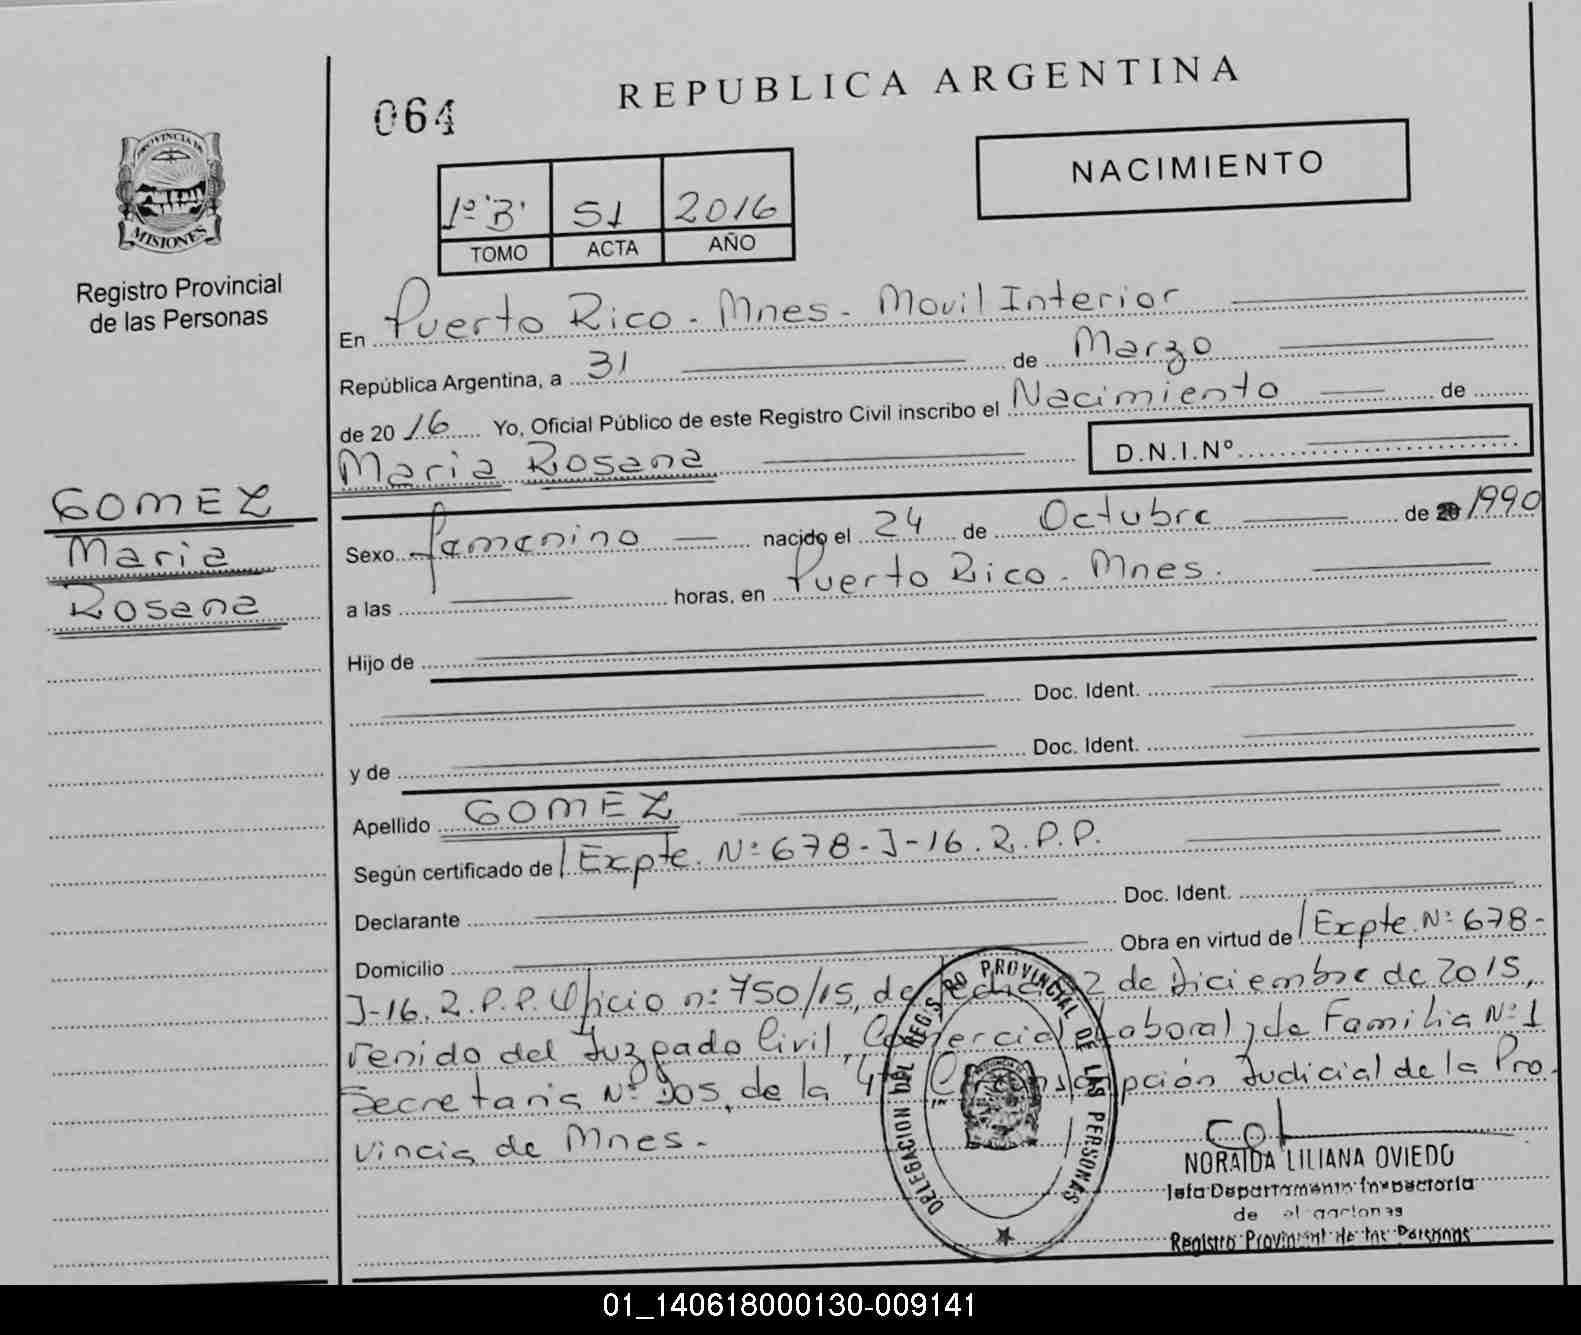 REPUBLICA ARGENTINA
064
NACIMIENTO
PROVINCIA DE
MISIONES
Registro Provincial
de las Personas
1º "B" 51 2016
TOMO ACTA AÑO
En Puerto Rico - Mnes - Movil Interior
República Argentina, a 31 de Marzo
de 2016 Yo, Oficial Público de este Registro Civil inscribo el Nacimiento de
Maria Rosana D.N.I.Nº
GOMEZ
Maria
Rosana
Sexo femenino nacido el 24 de Octubre de 1990
a las horas, en Puerto Rico - Mnes.
Hijo de
Doc. Ident.
y de Doc. Ident.
Apellido GOMEZ
Según certificado de / Expte. Nº 678-J-16.R.P.P.
Declarante Doc. Ident.
Domicilio Obra en virtud de / Expte. Nº 678-
J-16.R.P.P. Oficio nº 750/15, de fecha 2 de Diciembre de 2015,
venido del Juzgado Civil, Comercial, Laboral y de Familia Nº 1
Secretaria Nº Dos, de la 4ta Circunscripción Judicial de la Pro-
vincia de Mnes.
DELEGACION DEL REGISTRO PROVINCIAL DE LAS PERSONAS
NORAIDA LILIANA OVIEDO
Jefa Departamento Inspectoria
de
Registro Provincial de las Personas
01_140618000130-009141